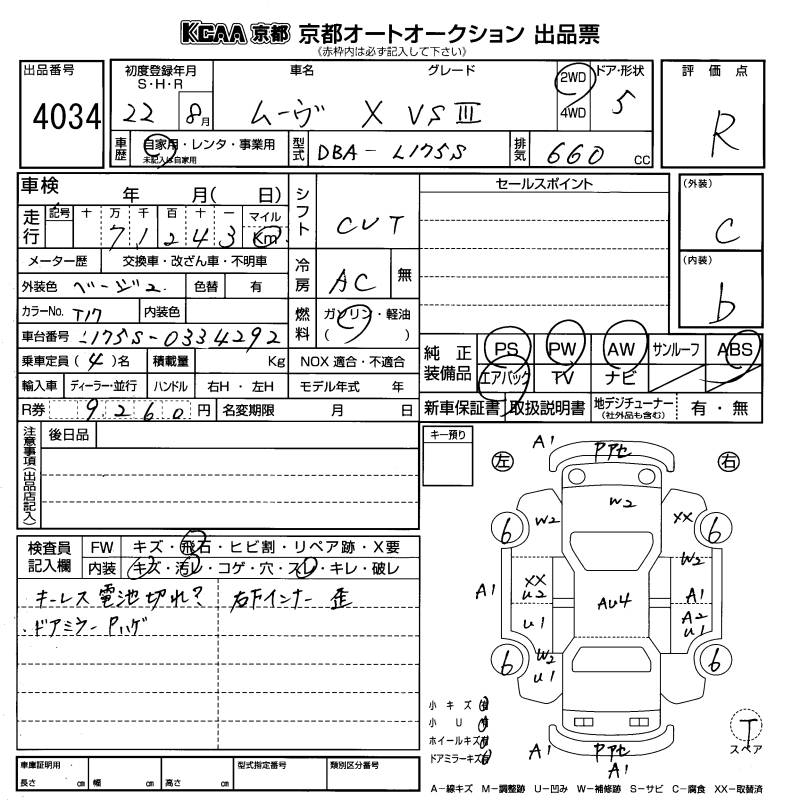 KCAA 京都 京都オートオークション 出品票
(赤枠内は必ず記入して下さい)
出品番号 4034
初度登録年月 S・H・R 22 8月
車名 グレード ムーヴ X VSⅢ
2WD 4WD
ドア・形状 5
評価点 R
車歴 自家用・レンタ・事業用
未記入は自家用
型式 DBA-L175S
排気 660 cc
車検 年 月( 日)
シフト CVT
セールスポイント
(外装) C
走行 記号 十 万 千 百 十 一 マイル Km
7 1 2 4 3
(内装) b
メーター歴 交換車・改ざん車・不明車
冷房 AC 無
外装色 ベージュ 色替 有
カラーNo. T17 内装色
燃料 ガソリン・軽油 ( )
車台番号 L175S-0334292
純正装備品 PS PW AW サンルーフ ABS
エアバック TV ナビ
乗車定員 (4)名 積載量 Kg NOX 適合・不適合
輸入車 ディーラー・並行 ハンドル 右H・左H モデル年式 年
R券 9260円 名変期限 月 日
新車保証書 取扱説明書 地デジチューナー (社外品も含む) 有・無
注意事項(出品店記入)
後日品
キー預り
左 右
A1 Pアセ
W2
W2 XX
6 6
W2
XX
U2
A1 AU4 A1
U1 A2
U1
W2
U1
6 6
A1 PアセA1
A1
検査員記入欄 FW キズ・飛石・ヒビ割・リペア跡・X要
内装 キズ・汚レ・コゲ・穴・スレ・キレ・破レ
キーレス電池切れ? 右下インナー 歪
・ドアミラー Pハゲ
小キズ 有
小 U 有
ホイールキズ 有
ドアミラーキズ 有
T
スペア
車庫証明用 長さ cm 幅 cm 高さ cm
型式指定番号 類別区分番号
A-線キズ M-調整跡 U-凹み W-補修跡 S-サビ C-腐食 XX-取替済